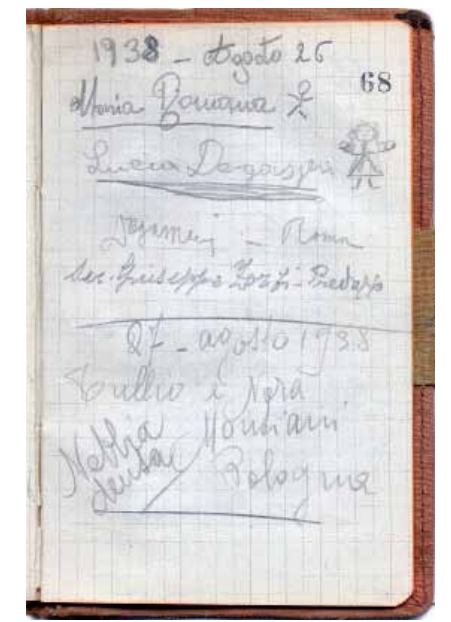 1938 - Agosto 26
68
Maria Romana
Lucia Degasperi
- Roma
Giuseppe Zorzi - Predazzo
27 - agosto 1938
Tullio e Nora
Monsiani
Bologna
Nebbia
densa